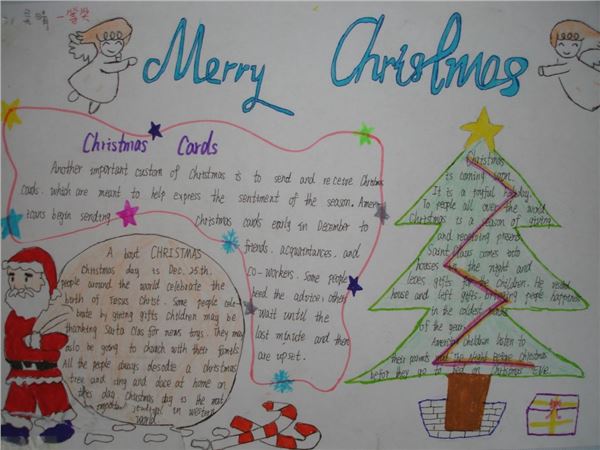 21 一等奖
Merry Christmas
Christmas Cards
Another important custom of Christmas is to send and receive Christmas
cards. which are meant to help express the sentiment of the season. Amer
icans begin sending Christmas cards early in December to
friends, acquaintances, and
co-workers. Some people
heed the advice; others
wait until the
last minute and then
are upset.
A bout CHRISTMAS
Christmas day is Dec. 25th.
people around the world celebrate the
birth of Jesus Christ. Some people cele
brate by giving gifts children may be
thanking Santa Clas for news toys. They may
aslo be going to church with their
All the people always desode a christmas
tree and sing and dace at home on
this day Christmas day is the most
in western
world.
Christmas
is coming soon.
It is a joyful holiday.
To people all over the world,
Christmas is a season of giving
and receiving present.
Saint Claus comes into
houses in the night and
leaves gifts for the children. He
house and left gifts bringing people happiness
in the coldest
of the year.
American children listen to
their parents The Night Before Christmas
before they go to bed on Christmas Eve.